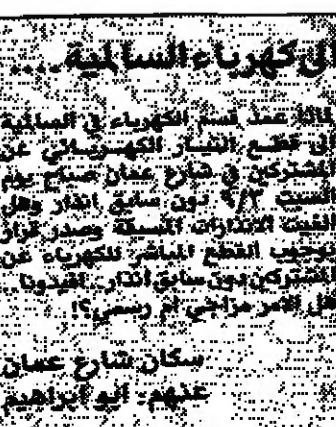 الى كهرباء السالمية....
لماذا عمد قسم الكهرباء في السالمية
الى قطع التيار الكهربائي عن
المشتركين في شارع عمان صباح يوم
السبت ٩/٣ دون سابق انذار وهل
الغيت الانذارات المسبقة وصدر قرار
بوجوب القطع المباشر للكهرباء عن
المشتركين دون سابق انذار.. افيدونا..
هل الامر مزاجي ام رسمي؟!
سكان شارع عمان
عنهم: ابو ابراهيم